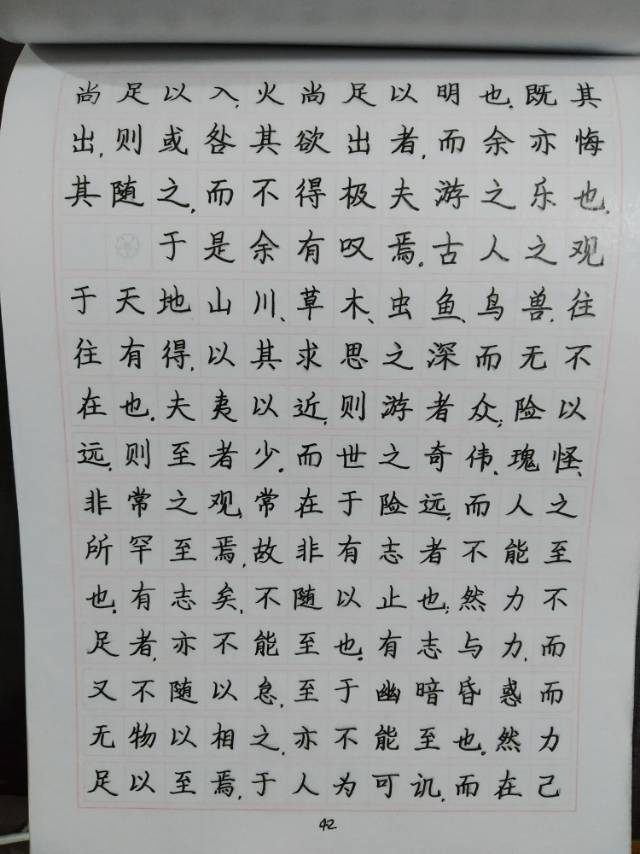 尚足以入,火尚足以明也.既其
出,则或咎其欲出者,而余亦悔
其随之,而不得极夫游之乐也.
于是余有叹焉.古人之观
于天地山川、草木、虫鱼、鸟兽,往
往有得,以其求思之深而无不
在也.夫夷以近,则游者众;险以
远,则至者少.而世之奇伟、瑰怪、
非常之观,常在于险远,而人之
所罕至焉,故非有志者不能至
也.有志矣,不随以止也;然力不
足者,亦不能至也.有志与力,而
又不随以怠,至于幽暗昏惑而
无物以相之,亦不能至也.然力
足以至焉,于人为可讥,而在己
42